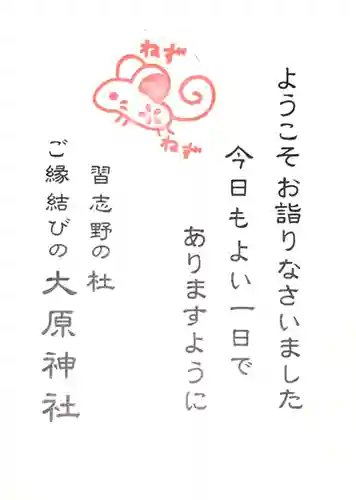 ようこそお詣りなさいました
今日もよい一日で
ありますように
習志野の杜
ご縁結びの大原神社
ねず
ねず